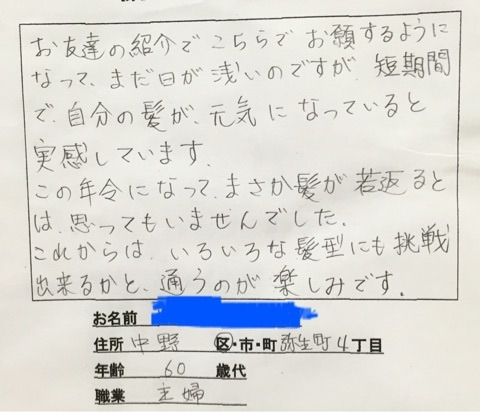 お友達の紹介でこちらでお願するように
なって、まだ日が浅いのですが、短期間
で、自分の髪が、元気になっていると
実感しています。
この年令になって、まさか髪が若返ると
は、思ってもいませんでした。
これからは、いろいろな髪型にも挑戦
出来るかと、通うのが楽しみです。
お名前
住所 中野 区・市・町 弥生町4丁目
年齢 60 歳代
職業 主婦